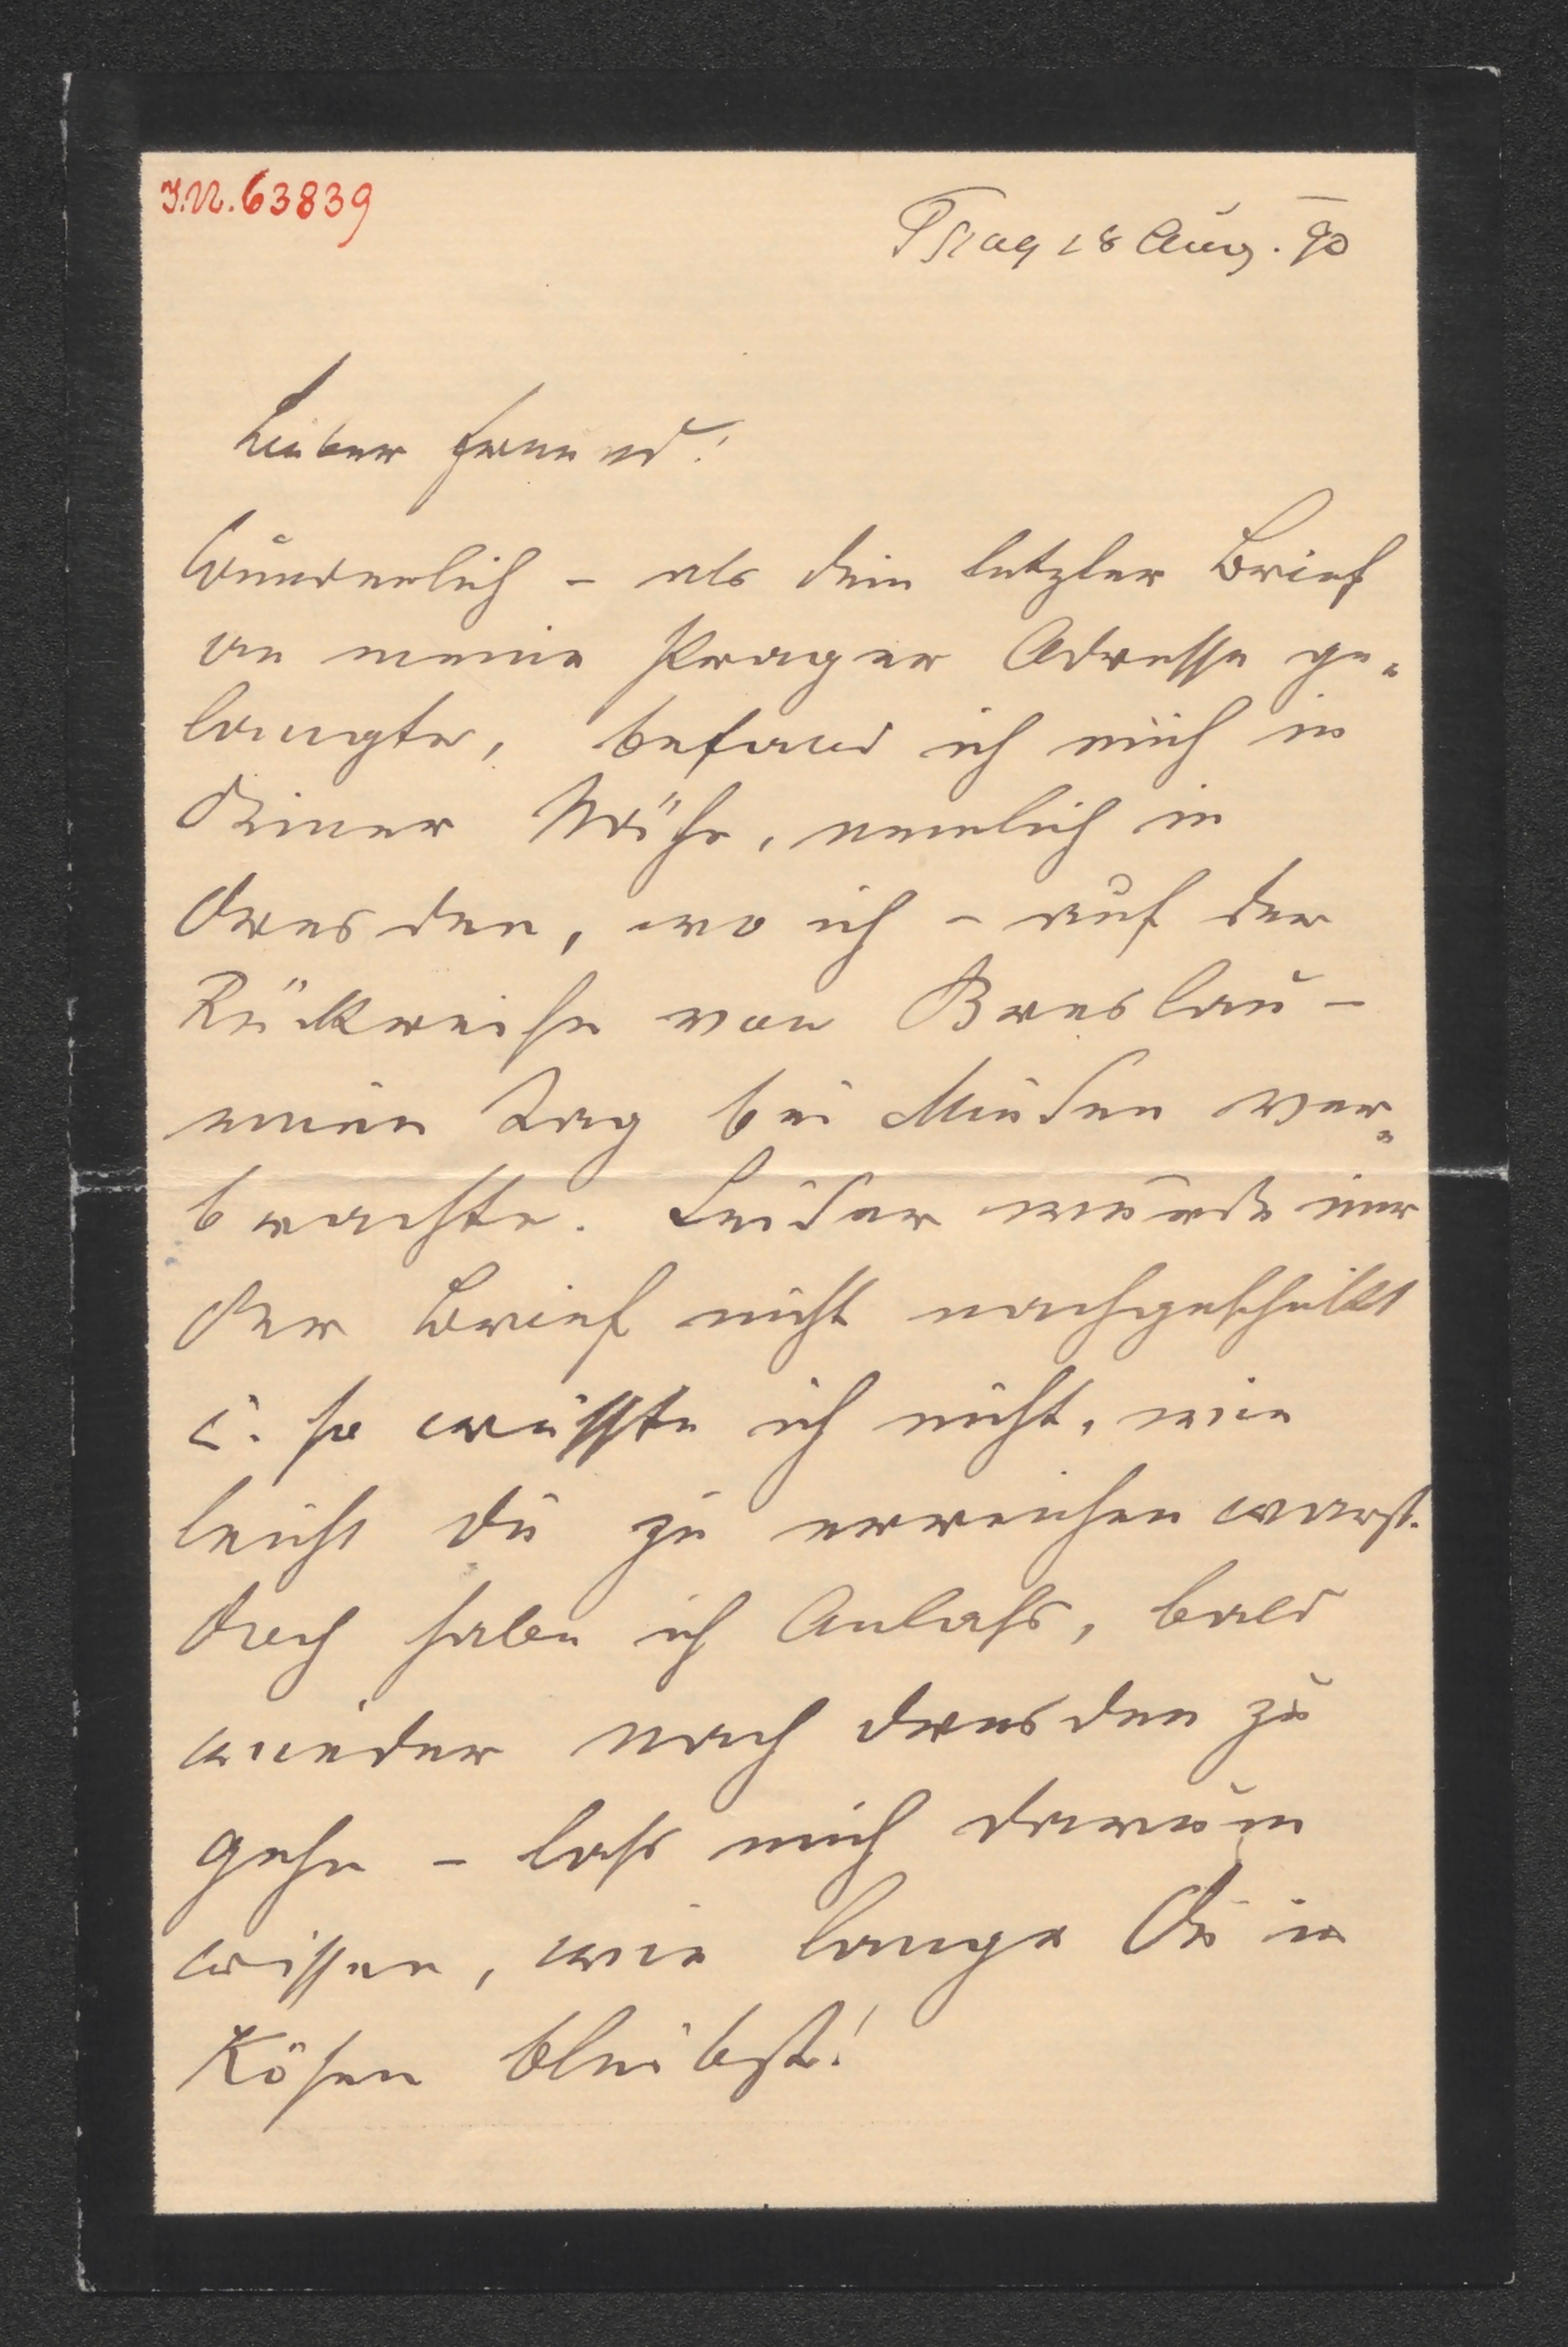 I.N. 63839
Prag 18 Aug. 90
Lieber Freund!
Wunderlich – als dein letzter Brief
an meine Prager Adresse ge-
langte, befand ich mich in
Deiner Nähe, nemlich in
Dresden, wo ich – auf der
Rückreise von Breslau –
einen Tag bei Muttern ver-
brachte. Leider wurde mir
der Brief nicht nachgeschickt
u. so wusste ich nicht, wie
leicht du zu erreichen warst.
Doch habe ich Anlass, bald
wieder nach Dresden zu
gehn – lass mich darum
wissen, wie lange Du in
Kösen bleibst!